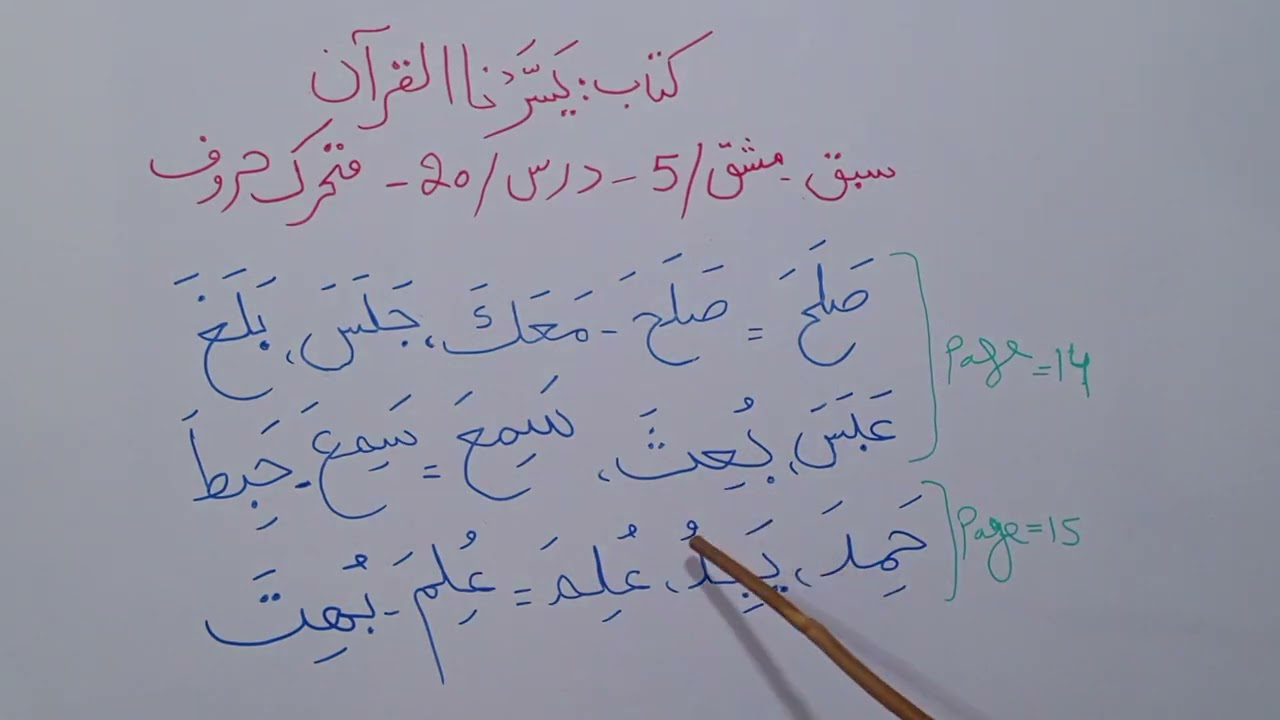 کتاب: یَسَّرْنَا القرآن
سبق - مشق/5 - درس/20 - متحرک حروف
صَلَحَ = صَلَحَ - مَعَكَ، جَلَسَ، بَلَغَ
عَبَسَ، بُعِثَ، سَمِعَ = سَمِعَ - حَبِطَ
Page = 14
حَمِدَ، يَدُ، عُلِمَ = عُلِمَ - بُهِتَ
Page = 15